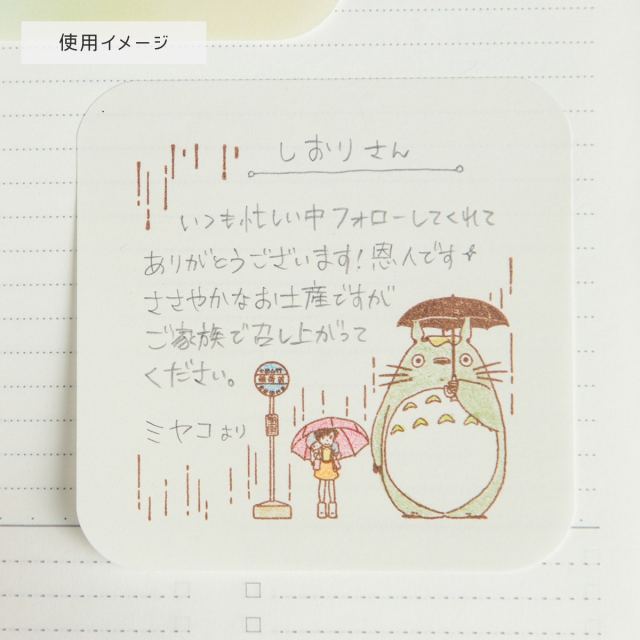 使用イメージ
しおりさん
いつも忙しい中フォローしてくれて
ありがとうございます!恩人です
ささやかなお土産ですが
ご家族で召し上がって
ください。
ミヤコより